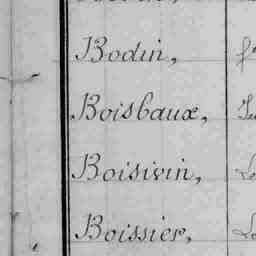 Bodin,
Boisbaux,
Boisivin,
Boissier,